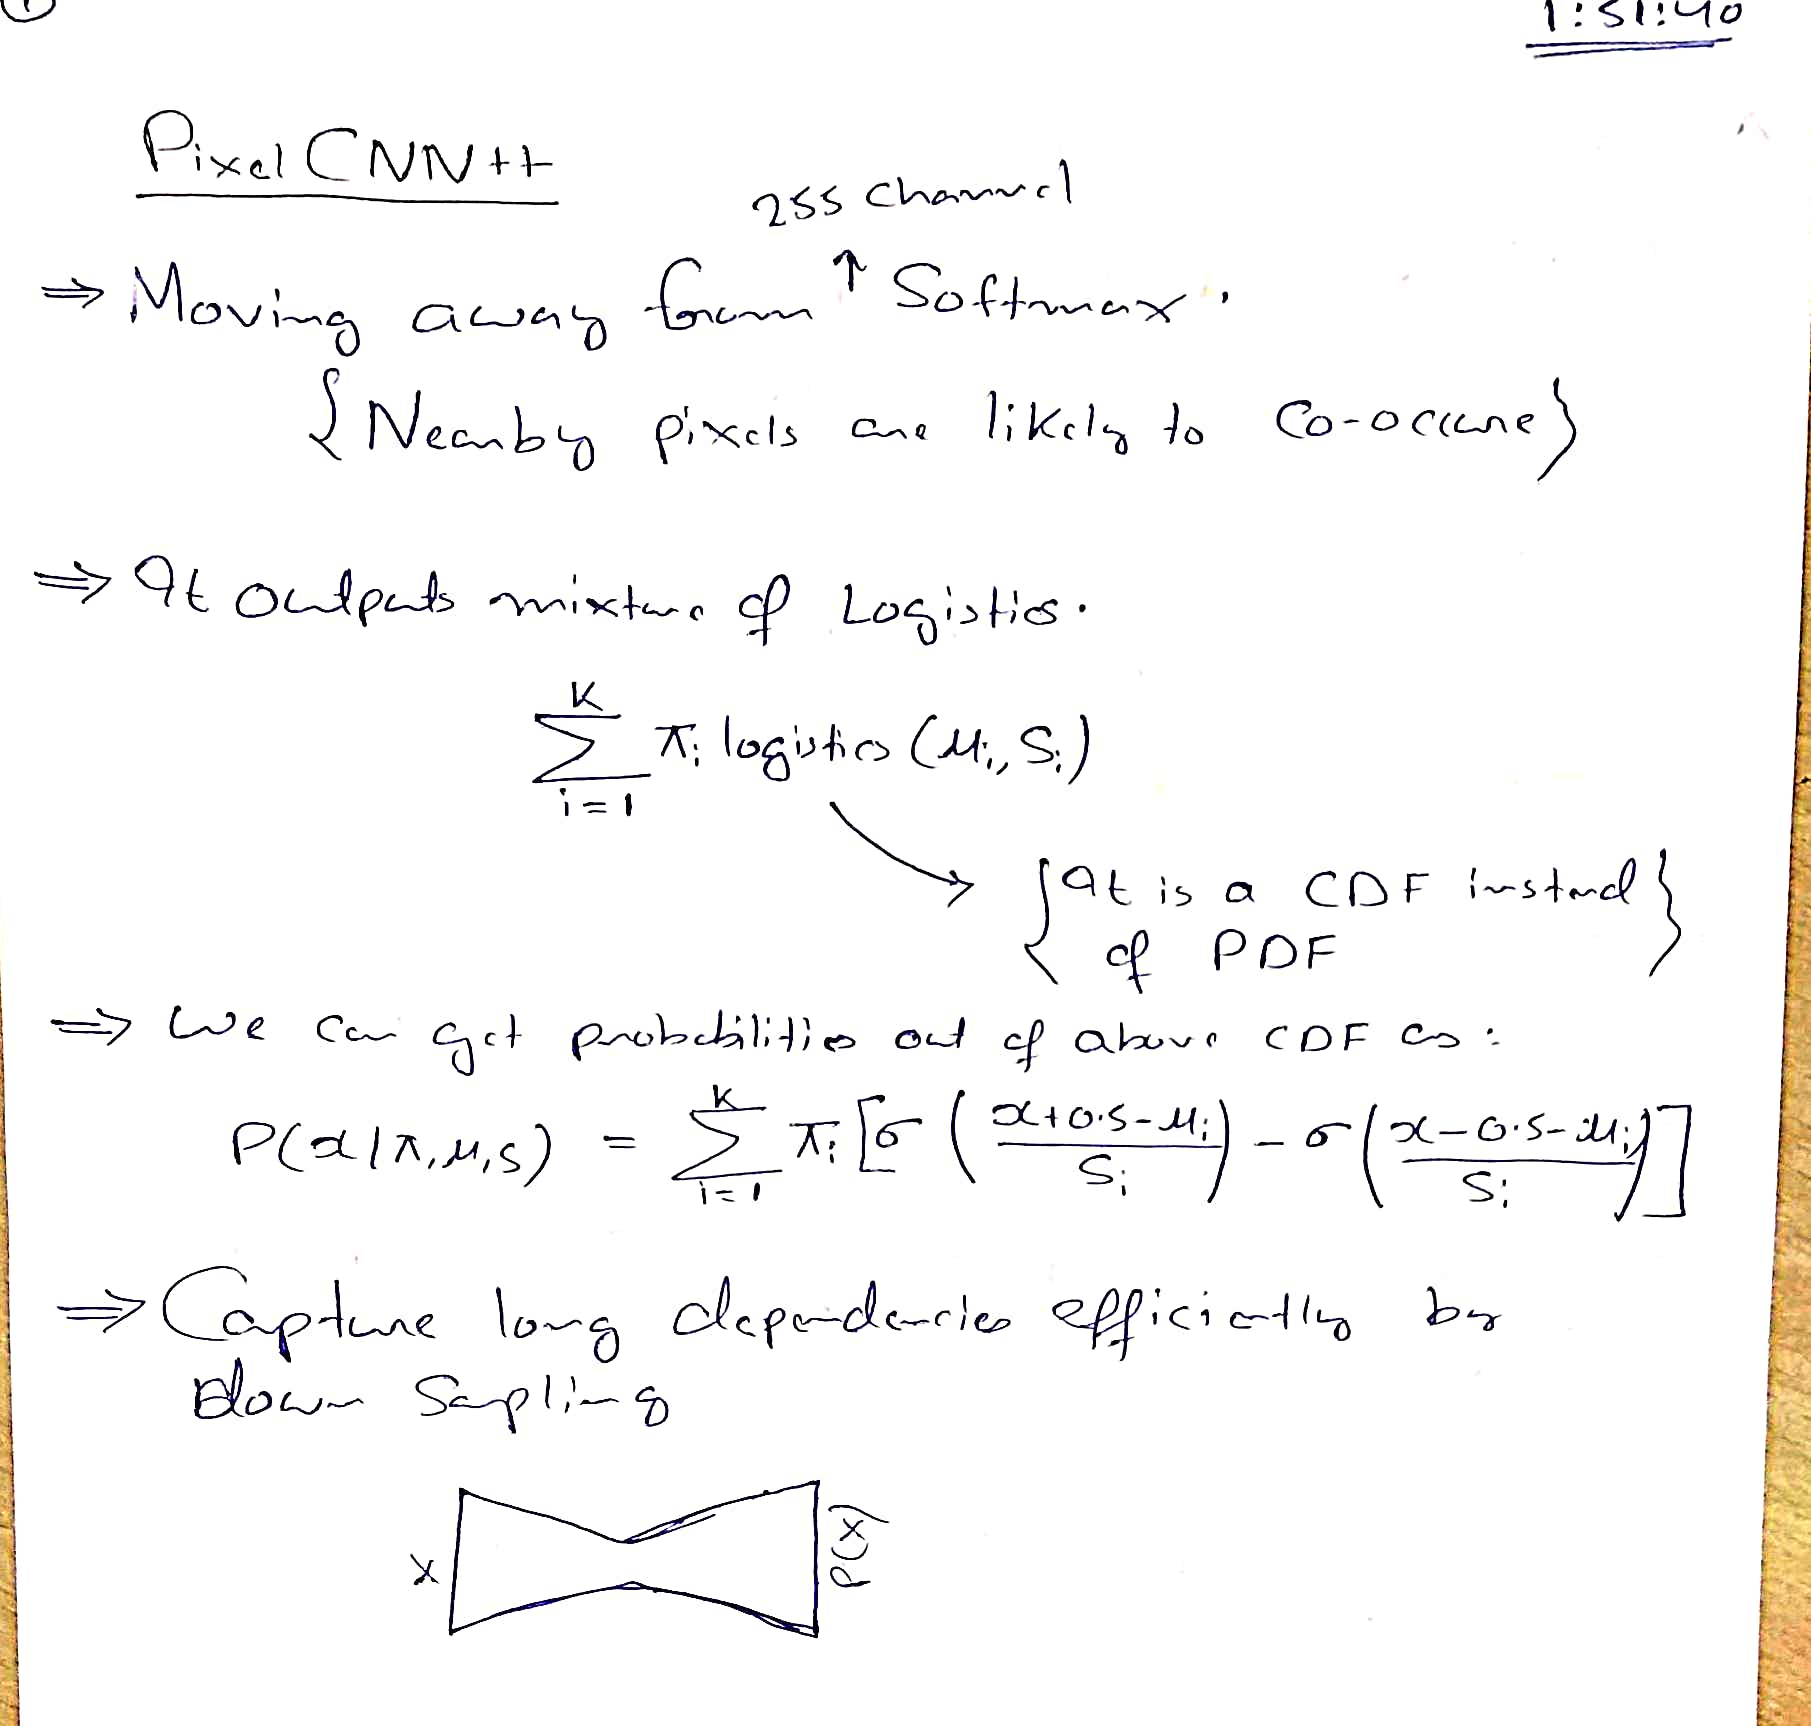 1
1:51:40
Pixel CNN++
255 channel
⇒ Moving away from ↑ Softmax.
{Nearby pixels are likely to Co-occure}
⇒ It outputs mixture of Logistics.
\sum_{i=1}^{K} π_i logistics (μ_i, S_i)
{It is a CDF instead
of PDF}
⇒ We can get probabilities out of above CDF as:
P(x|π,μ,s) = \sum_{i=1}^{K} π_i [σ((x+0.5-μ_i)/S_i) - σ((x-0.5-μ_i)/S_i)]
⇒ Capture long dependencies efficiently by
Down Sapling
X P(X)